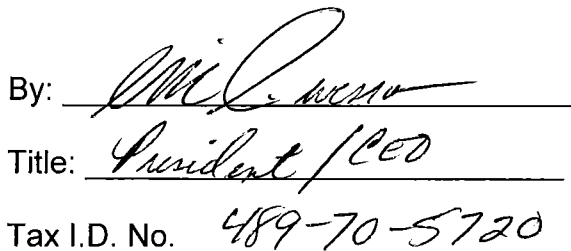 By:
Title: President / CEO
Tax I.D. No. 489-70-5720